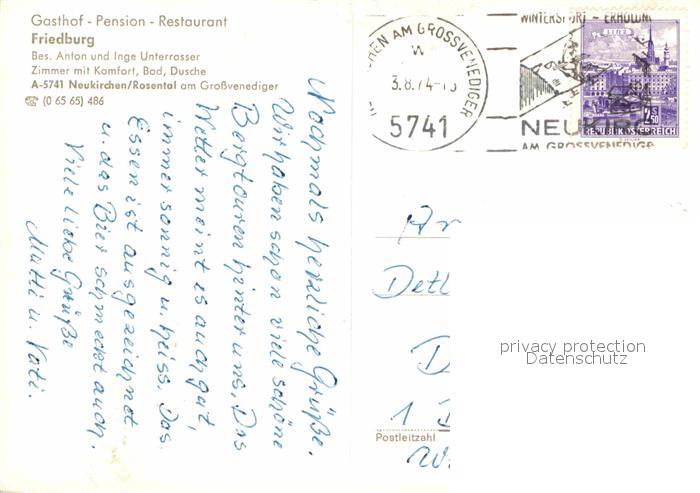 Gasthof - Pension - Restaurant
Friedburg
Bes. Anton und Inge Unterrasser
Zimmer mit Komfort, Bad, Dusche
A-5741 Neukirchen/Rosental am Großvenediger
☎ (0 65 65) 486
Nochmals herzliche Grüße.
Wir haben schon viele schöne
Bergtouren hinter uns. Das
Wetter meint es auch gut,
immer sonnig u. heiss. Das
Essen ist ausgezeichnet
u. das Bier schmeckt auch.
Viele liebe Grüße
Mutti u. Vati.
CHEN AM GROSSVENEDIGER
3.8.74-
5741
WINTERSPORT - ERHOLUN
NEUKIRC
AM GROSSVENEDIGE
LINZ
2.50
REPUBLIK ÖSTERREICH
An
Detl
D
1
Postleitzahl
W
privacy protection
Datenschutz